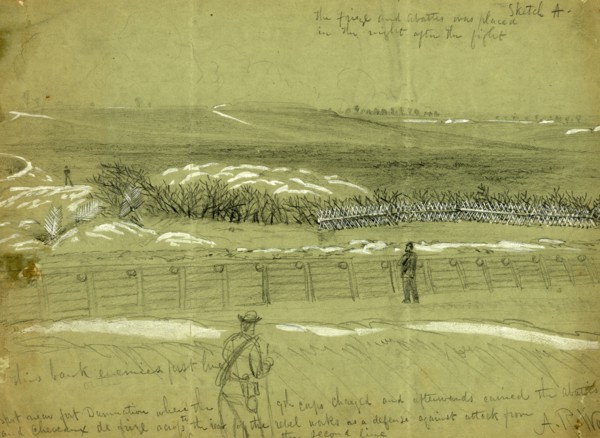 Sketch A.
the frise and abattis was placed
in the night after the fight
this bank enemies first line
spot near fort Damnation where the 9th corps charged and afterwards carried the abattis
and Chevaux de frise across the rear of the rebel works as a defense against attack from
the second line